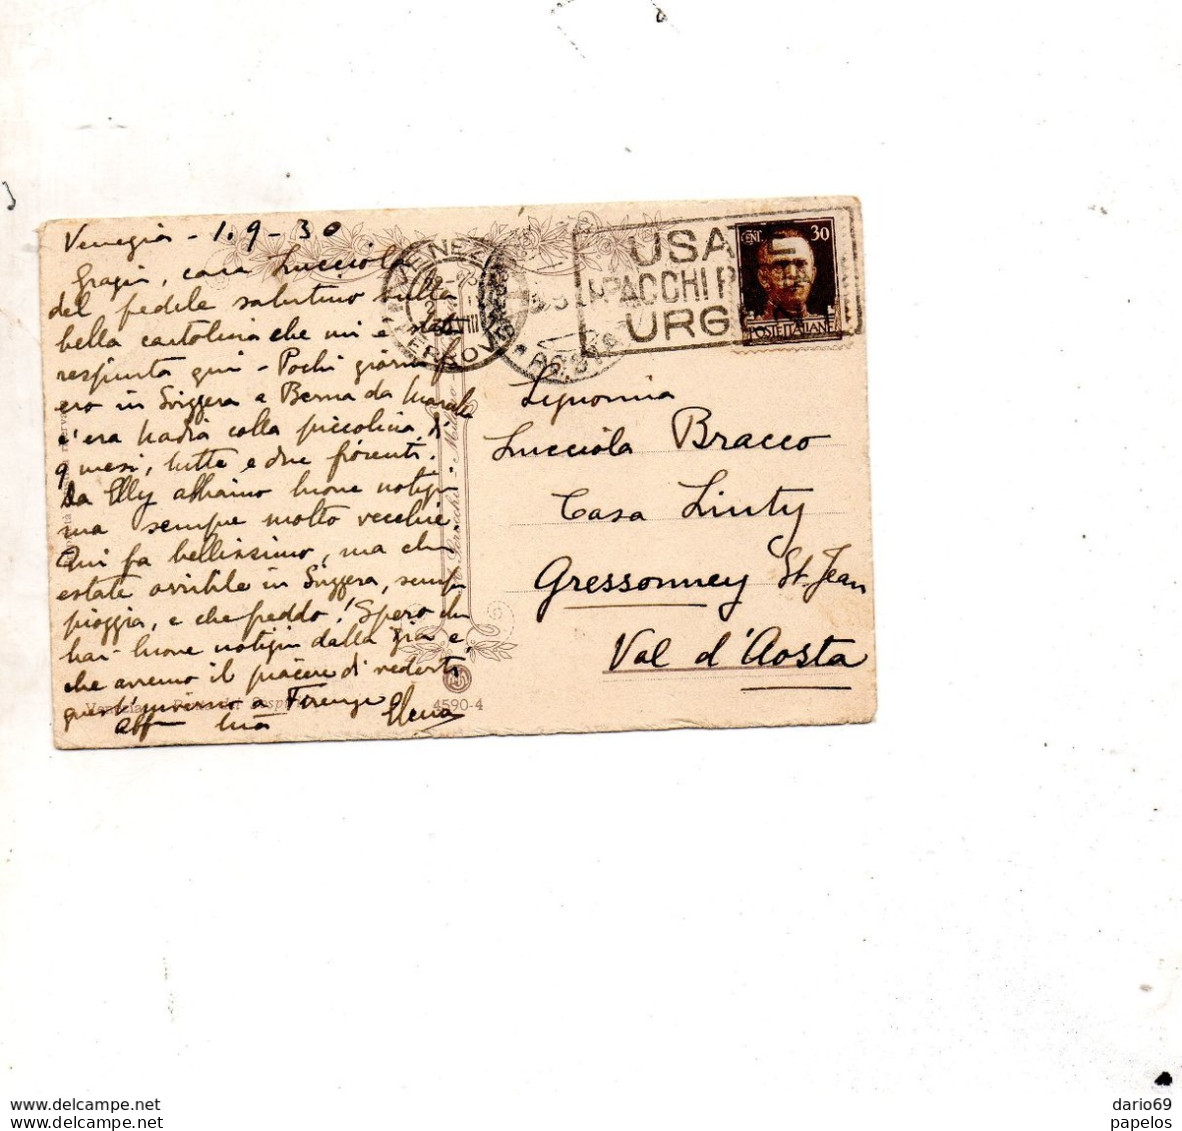 Venezia - 1.9-30
Grazie, cara Lucciola
del fedele salutino sulla
bella cartolina che mi è stata
respinta qui - Pochi giorni fa
ero in Svizzera a Berna da
c'era Nadia colla piccolina di
9 mesi, tutte e due fiorenti.
Da Elly abbiamo buone notizie
ma sempre molto vecchie
Qui fa bellissimo, ma che
estate orribile in Svizzera, sempre
pioggia, e che freddo! Spero che
hai buone notizie dalla Zia e
che avremo il piacere di vederti
quest'inverno a Firenze
aff tua Elena
VENEZIA
FERROVIA
USATE
PACCHI
URG
CENT. 30
POSTE ITALIANE
Signorina
Lucciola Bracco
Casa Linty
Gressonney St. Jean
Val d'Aosta
Milano
4590-4
dario69
papelos